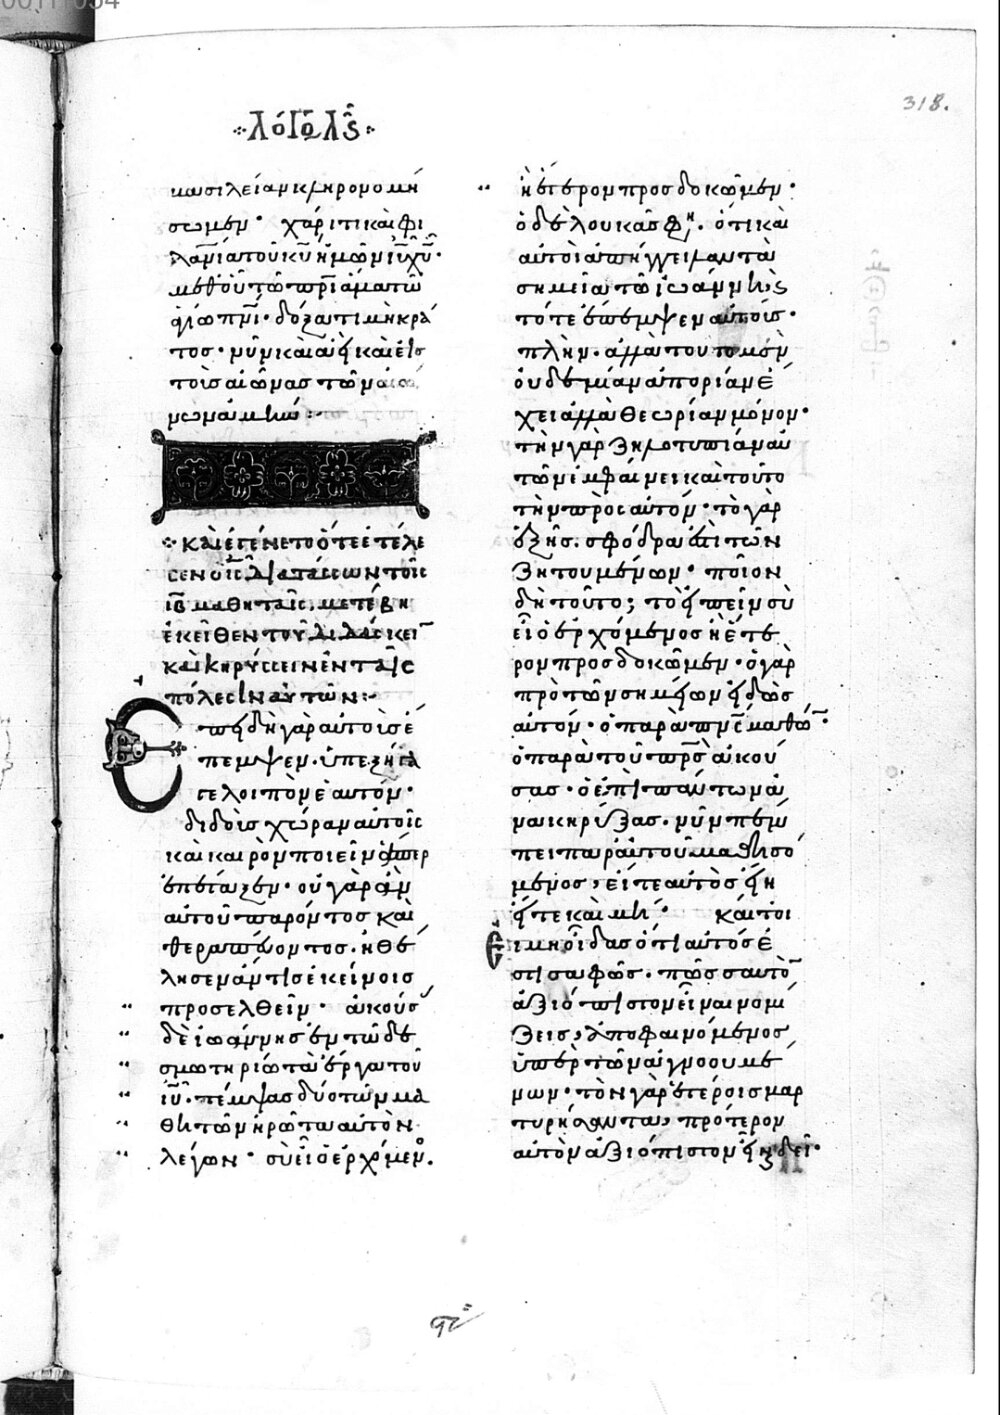 318.
λόγος λϛ
βασιλείαν κληρονομή
σωμεν· χάριτι καὶ φι
λανίᾳ τοῦ κυ ἡμῶν ιυ χυ·
μεθοῦ τῶ πρι ἅμα τῶ
ἁγίω πνι· δόξα τιμὴ κρά
τος· νῦν καὶ ἀεὶ καὶ εἰς
τοὺς αἰῶνας τῶν αἰώ
νων ἀμήν:-
καὶ ἐγένετο ὅτε ἐτέλε
σεν ὁ ις διατάσσων τοῖς
ιβ μαθηταῖς. μετέβη
ἐκεῖθεν τοῦ διδάσκειν
καὶ κηρύσσειν ἐν ταῖς
πόλεσιν αὐτῶν:-
Ἐπειδὴ γὰρ αὐτοὺς ἔ
πεμψεν. ὑπεξήγα
γε λοιπὸν ἑαυτόν·
διδοὺς χώραν αὐτοῖς
καὶ καιρὸν ποιεῖν ἅπερ
ἐπέταξεν· οὐ γὰρ ἂν
αὐτοῦ παρόντος καὶ
θεραπεύοντος. ἠθέ
λησεν ἄν τις ἐκείνοις
προσελθεῖν· ἀκούσ
δὲ ἰωάννης ἐν τῶ δε
σμωτηρίω τὰ ἔργα τοῦ
ιυ. πέμψας δύο τῶν μα
θητῶν ἠρώτα αὐτὸν
λέγων· σὺ εἶ ὁ ἐρχόμενο.
ἢ ἕτερον προσδοκῶμεν·
ὁ δὲ λουκᾶς φη. ὅτι καὶ
αὐτοὶ ἀπήγγειλαν τὰ
σημεῖα τῶ ἰωάννη, ϛ
τότε ἔπεμψεν αὐτούς·
πλὴν. ἀλλὰ τοῦτο μὲν
οὐδεμίαν ἀπορίαν ἔ
χει ἀλλὰ θεωρίαν μόνον·
τὴν γὰρ ζηλοτυπίαν αὐ
τῶν ἐμφαίνει καὶ τοῦτο
τὴν πρὸς αὐτόν· τὸ γὰρ
ἑξῆς. σφόδρα ἐστὶ τῶν
ζητουμένων· ποῖον
δὴ τοῦτο; τὸ εἰπεῖν σὺ
εἶ ὁ ἐρχόμενος ἢ ἕτε
ρον προσδοκῶμεν· ὁ γὰρ
πρὸ τῶν σημείων εἰδὼς
αὐτόν· ὁ παρὰ πνς μαθών·
ὁ παρὰ τοῦ πρς ἀκού
σας· ὁ ἐπὶ πάντων ἀ
νακηρύξας. νῦν πέμ
πει παρ αὐτοῦ μαθησό
μενος, εἴτε αὐτὸς εἴη
εἴτε καὶ μή· καίτοι
εἰ μὴ οἶδας ὅτι αὐτός ἐ
στι σαφῶς. πῶς σαυτὸν
ἀξιόπιστον εἶναι νομί
ζεις, ἀποφαινόμενος
ὑπὲρ τῶν ἀγνοουμέ
νων· τὸν γὰρ ἑτέροις μαρ
τυρήσοντα, πρότερον
αὐτὸν ἀξιόπιστον εἶναι δεῖ·